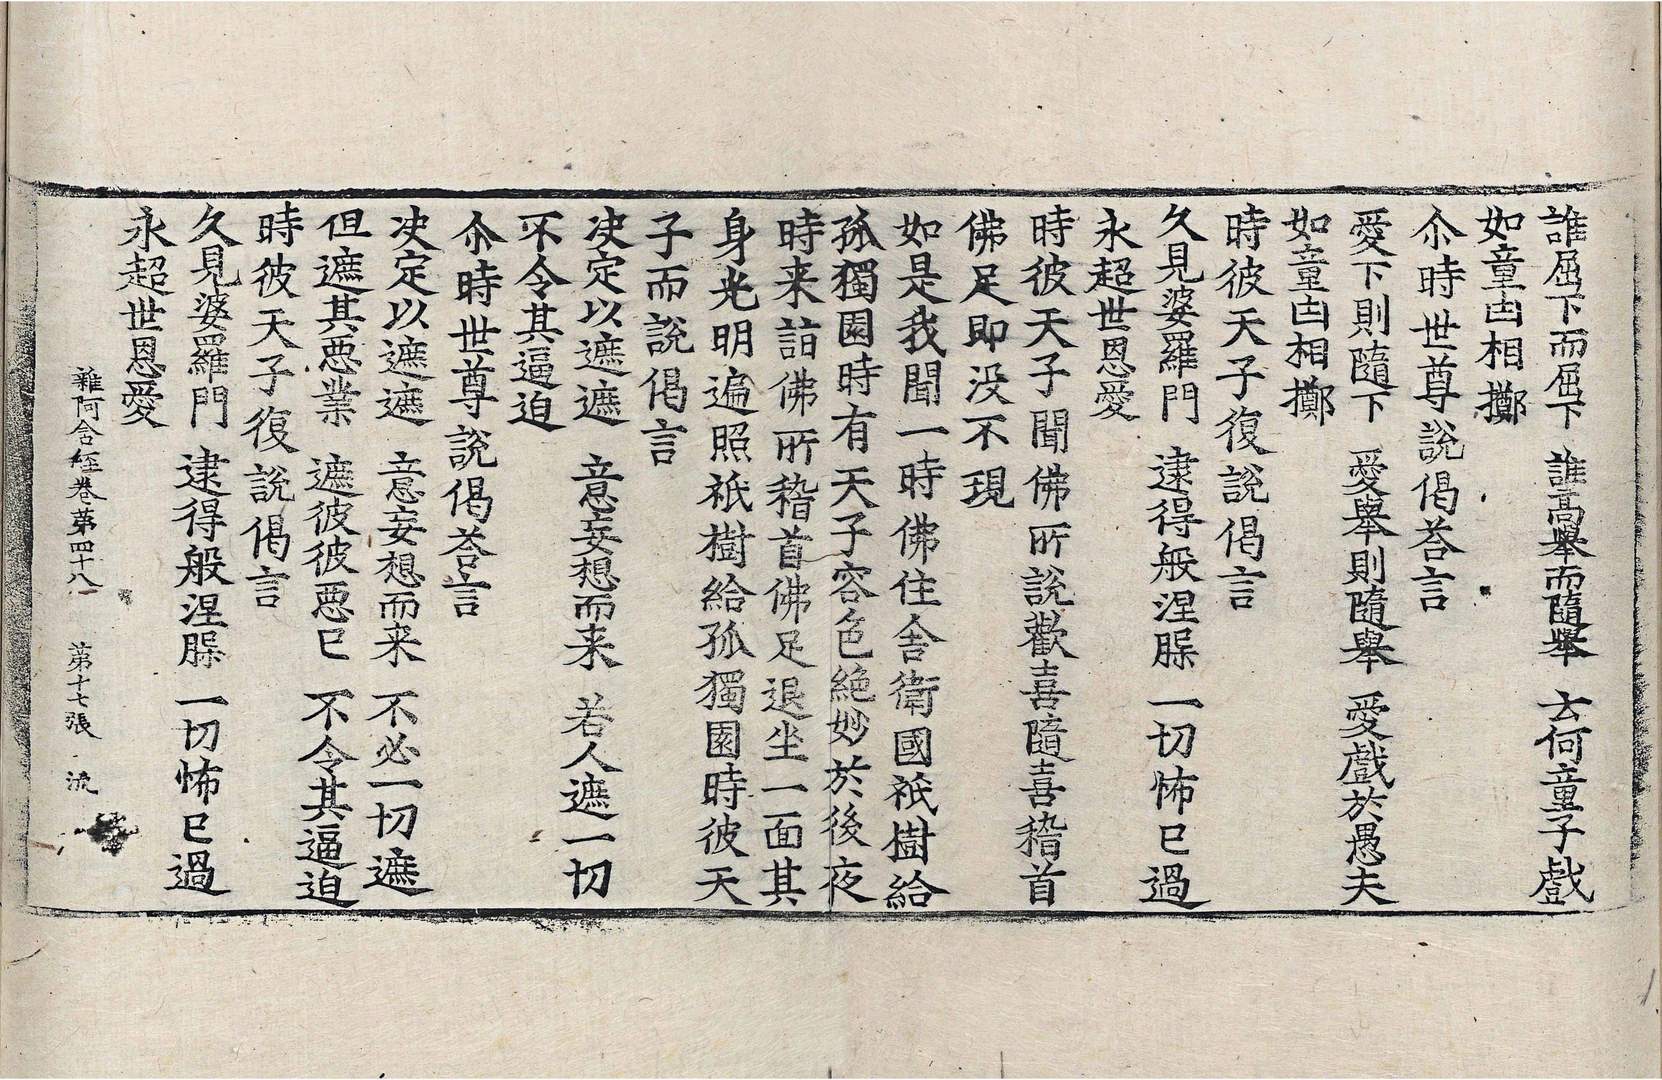 誰屈下而屈下　誰高舉而隨舉　去何童子戲
如童凷相擲
尒時世尊說偈荅言
愛下則隨下　愛舉則隨舉　愛戲於愚夫
如童凷相擲
時彼天子復說偈言
久見婆羅門　逮得般涅槃　一切怖已過
永超世恩愛
時彼天子聞佛所說歡喜隨喜稽首
佛足即没不現
如是我聞一時佛住舍衛國祇樹給
孤獨園時有天子容色絶妙於後夜
時来詣佛所稽首佛足退坐一面其
身光明遍照祇樹給孤獨園時彼天
子而說偈言
决定以遮遮　意妄想而来　若人遮一切
不令其逼迫
尒時世尊說偈荅言
决定以遮遮　意妄想而来　不必一切遮
但遮其惡業　遮彼彼惡已　不令其逼迫
時彼天子復說偈言
久見婆羅門　逮得般涅槃　一切怖已過
永超世恩愛
雜阿含經卷第四十八　第十七張　流